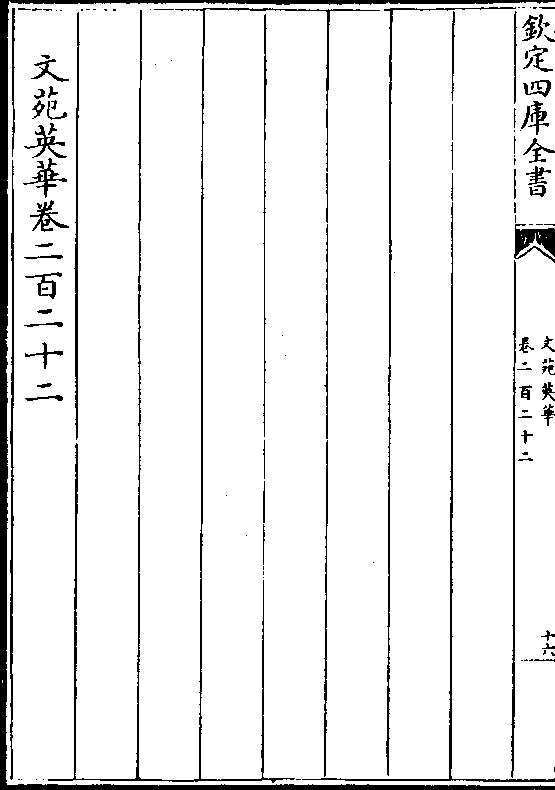 欽定四庫全書
文苑英華
卷二百二十二
十六
文苑英華卷二百二十二